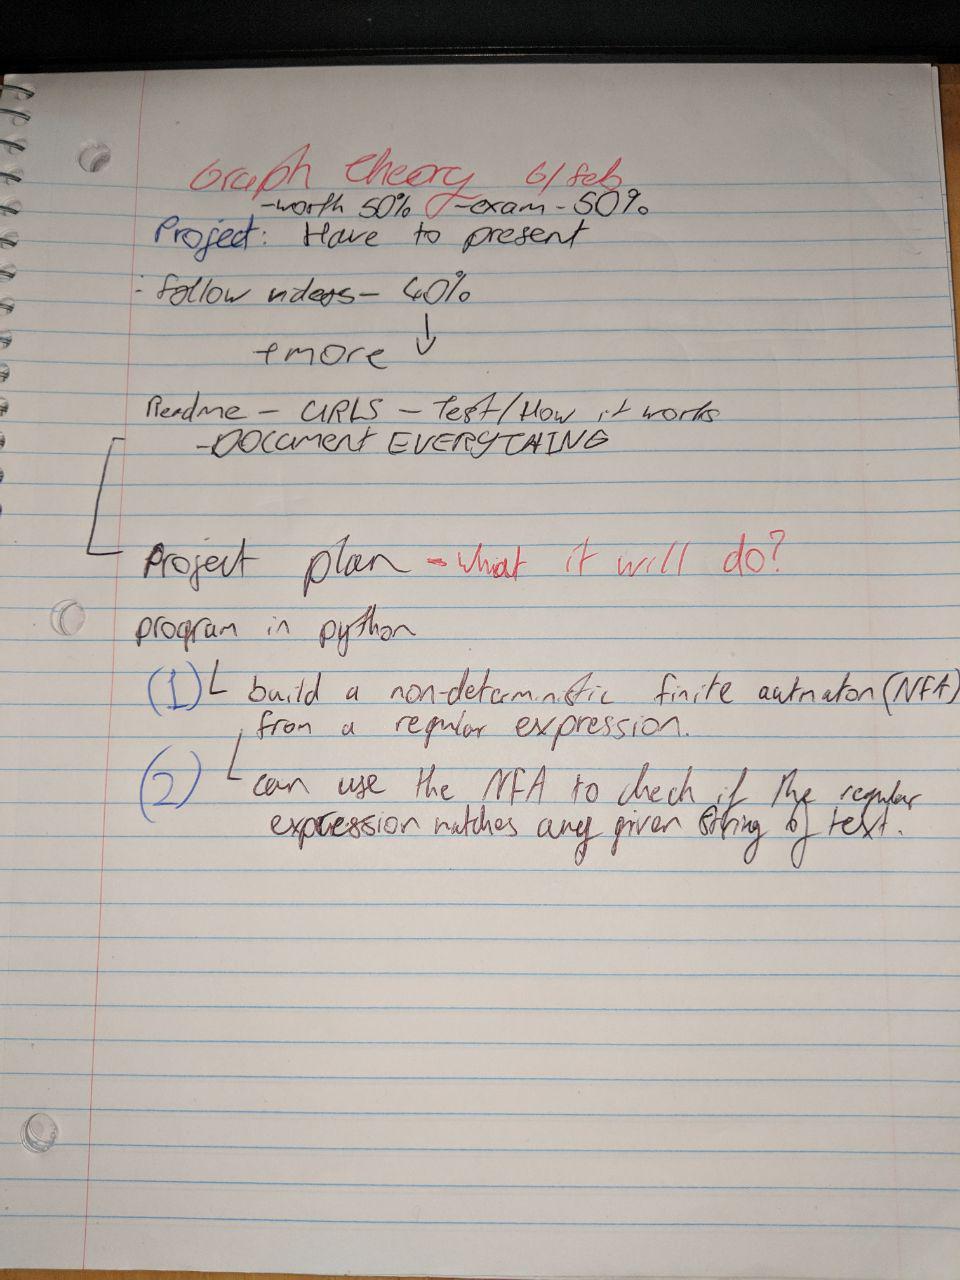 Graph theory 6/feb
-worth 50% -exam - 50%
Project: Have to present
: follow videos - 40%
+more
Readme - URLS - Test/How it works
-Document EVERYTHING
Project plan - what it will do?
program in python
(1) build a non-deterministic finite autmaton (NFA)
from a regular expression.
(2) can use the NFA to check if the regular
expression matches any given string of text.